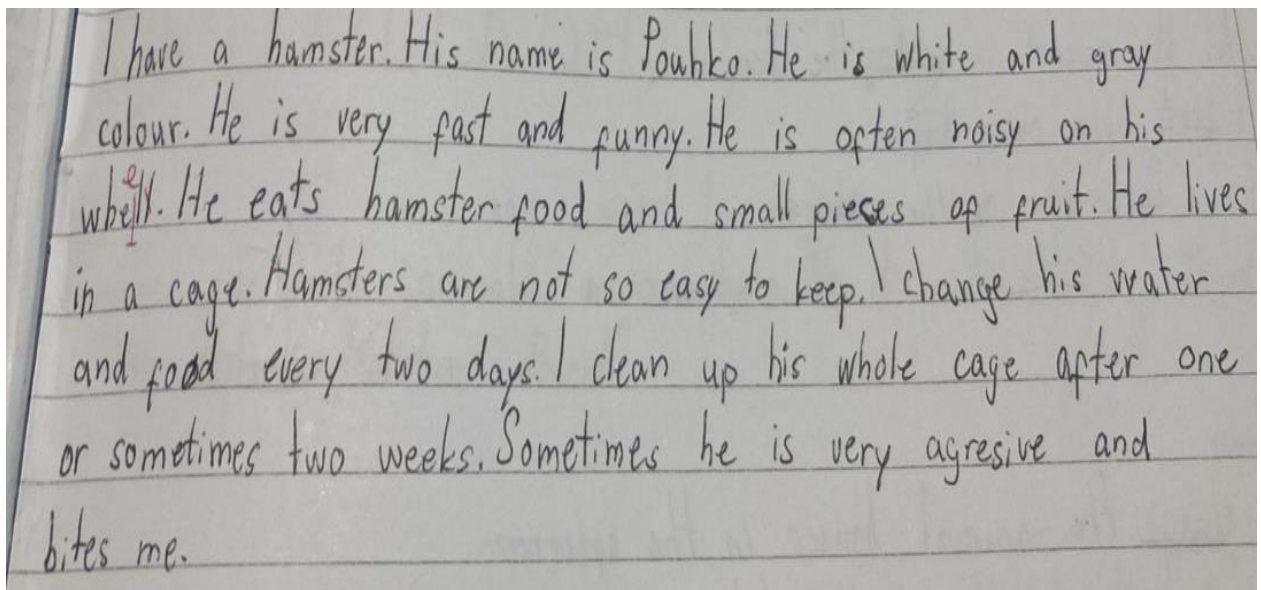 I have a hamster. His name is Pouhko. He is white and gray
colour. He is very fast and funny. He is often noisy on his
whell. He eats hamster food and small pieses of fruit. He lives
in a cage. Hamsters are not so easy to keep. I change his water
and food every two days. I clean up his whole cage after one
or sometimes two weeks. Sometimes he is very agresive and
bites me.